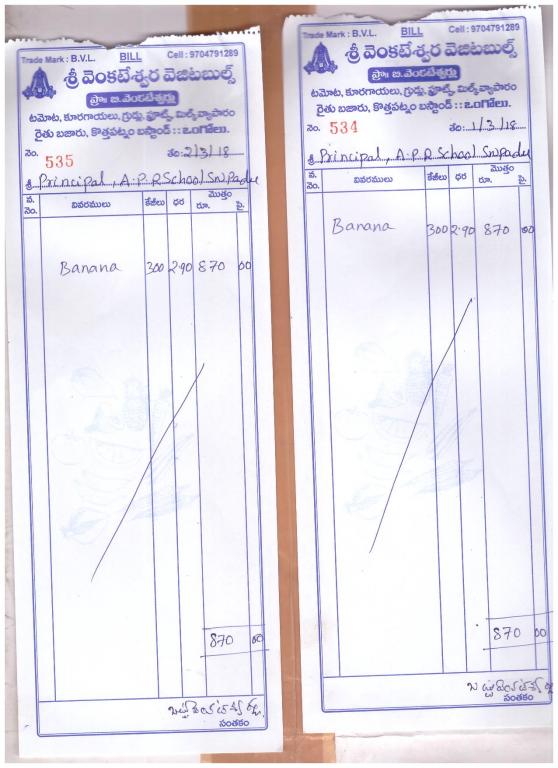 Trade Mark : B.V.L. BILL Cell : 9704791289
శ్రీ వెంకటేశ్వర వెజిటబుల్స్
ప్రొః బి.వెంకటేశ్వర్లు
టమోట, కూరగాయలు, గ్రుడ్లు, ఫ్రూట్స్, మిల్క్ వ్యాపారం
రైతు బజారు, కొత్తపట్నం బస్టాండ్ :: ఒంగోలు.
నెం. 535 తేది: 2/3/18
శ్రీ Principal, A.P.R School SNPadu
వ.నెం. వివరములు కేజీలు ధర మొత్తం రూ. పై.
Banana 300 2.90 870 00
870 00
సంతకం
Trade Mark : B.V.L. BILL Cell : 9704791289
శ్రీ వెంకటేశ్వర వెజిటబుల్స్
ప్రొః బి.వెంకటేశ్వర్లు
టమోట, కూరగాయలు, గ్రుడ్లు, ఫ్రూట్స్, మిల్క్ వ్యాపారం
రైతు బజారు, కొత్తపట్నం బస్టాండ్ :: ఒంగోలు.
నెం. 534 తేది: 1/3/18
శ్రీ Principal, A.P.R School SNPadu
వ.నెం. వివరములు కేజీలు ధర మొత్తం రూ. పై.
Banana 300 2.90 870 00
870 00
సంతకం